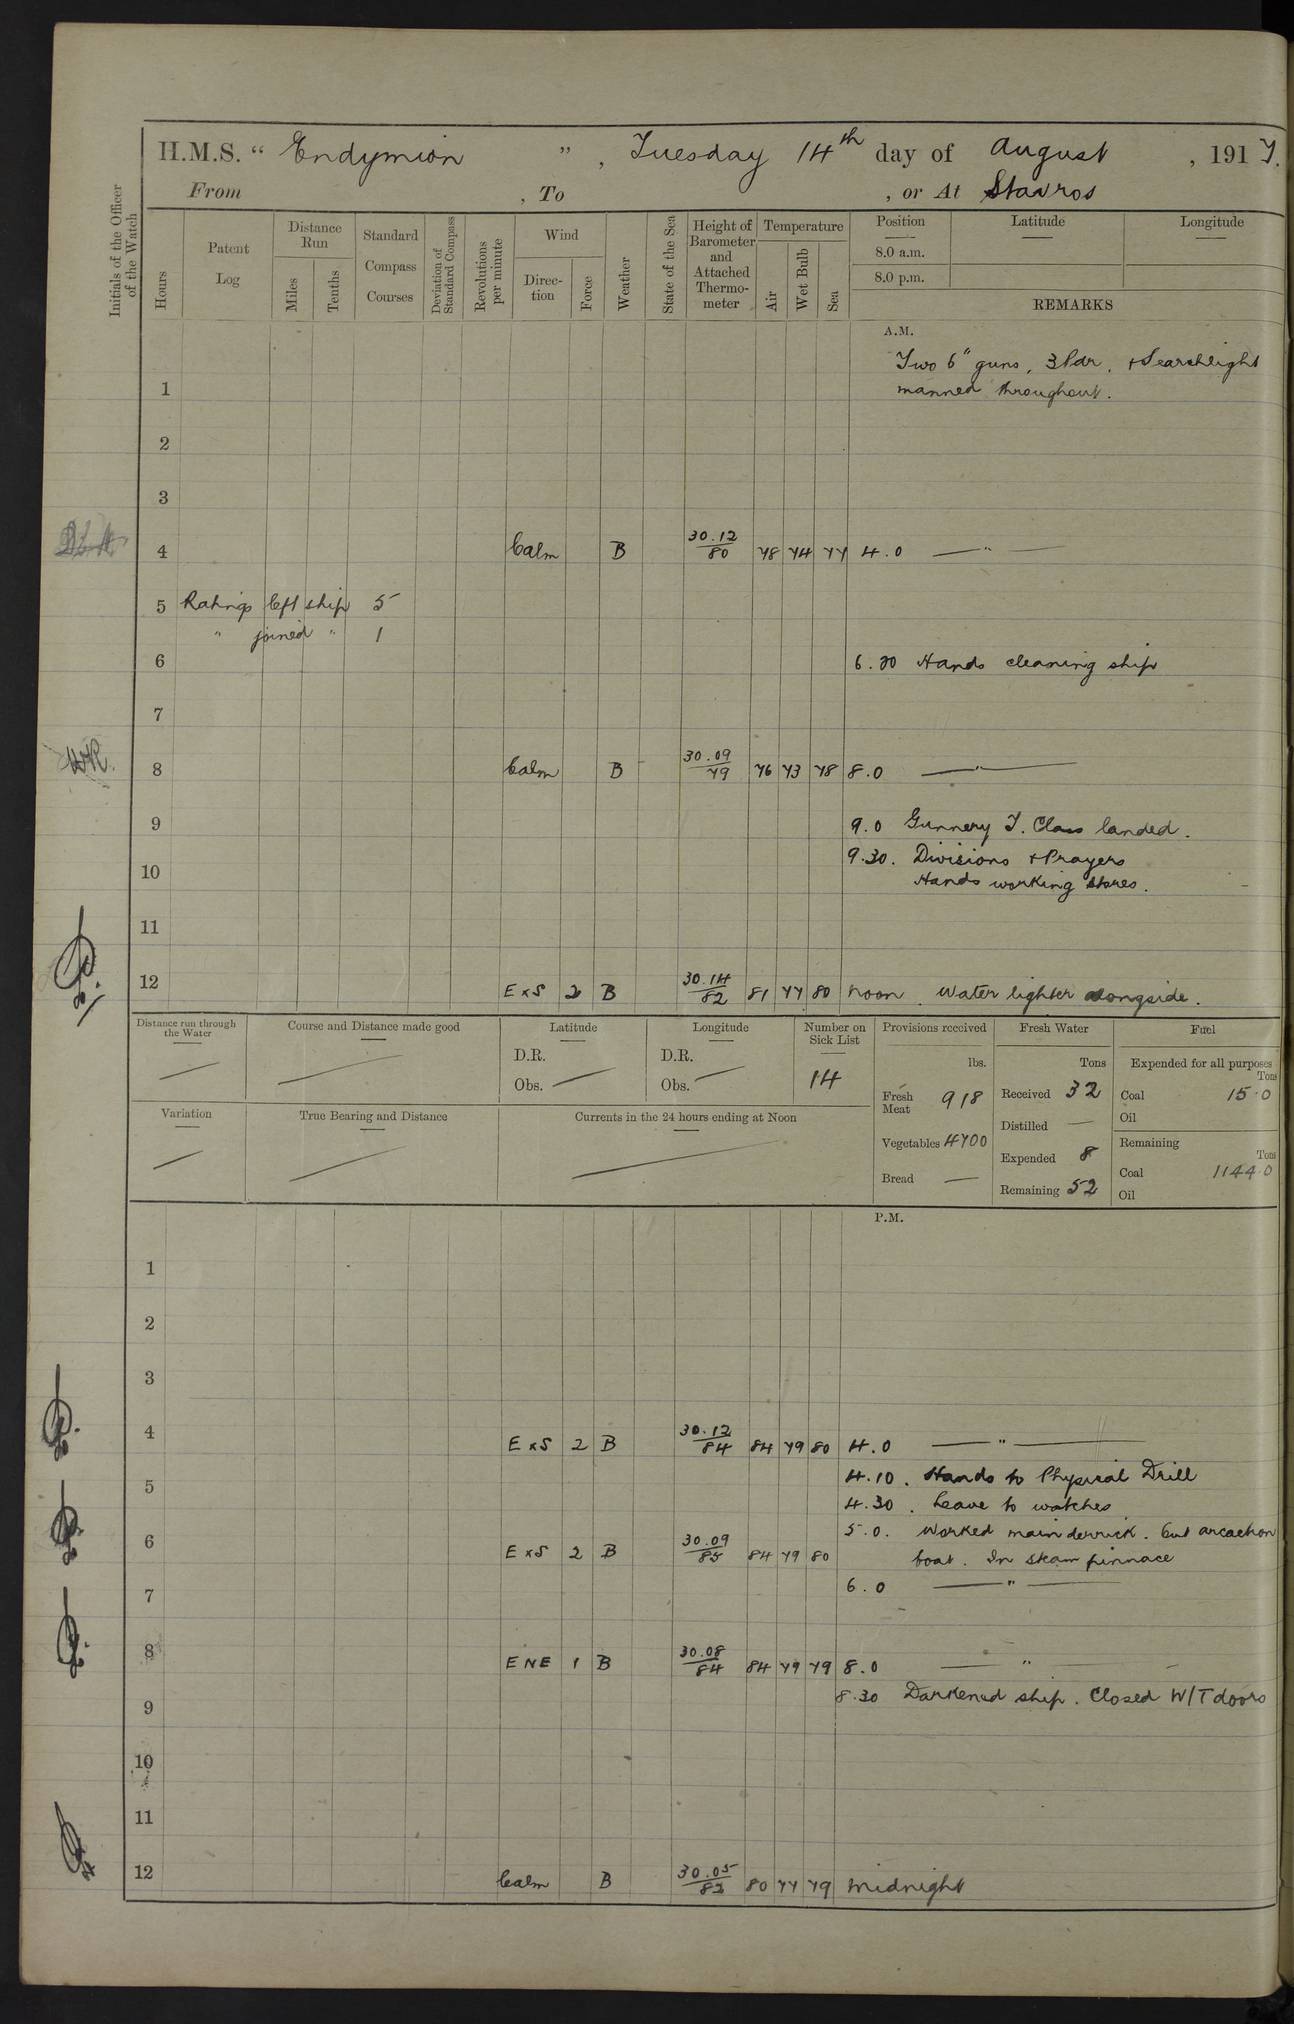 H.M.S. " Endymion ", Tuesday 14th day of August, 1917.
From , To , or At Stavros
Initials of the Officer of the Watch
Hours
Patent Log
Distance Run
Miles
Tenths
Standard Compass Courses
Deviation of Standard Compass
Revolutions per minute
Wind
Direction
Force
Weather
State of the Sea
Height of Barometer and Attached Thermometer
Temperature
Air
Wet Bulb
Sea
Position
8.0 a.m.
8.0 p.m.
Latitude
Longitude
REMARKS
A.M.
Two 6" guns, 3 Pdr. + Searchlight
1 manned throughout.
2
3
4 Calm B 30.12/80 78 74 77 4.0 — " —
5 Ratings left ship 5
" joined " 1
6 6.20 Hands cleaning ship
7
8 Calm B 30.09/79 76 73 78 8.0 — " —
9 9.0 Gunnery T. Class landed.
9.30. Divisions + Prayers
10 Hands working stores.
11
12 E x S 2 B 30.14/82 81 77 80 noon. Water lighter alongside.
Distance run through the Water
Course and Distance made good
Latitude
D.R.
Obs.
Longitude
D.R.
Obs.
Number on Sick List
14
Provisions received
lbs.
Fresh Meat 918
Vegetables 4700
Bread —
Fresh Water
Tons
Received 32
Distilled —
Expended 8
Remaining 52
Fuel
Expended for all purposes
Tons
Coal 15.0
Oil
Remaining
Tons
Coal 1144.0
Oil
Variation
True Bearing and Distance
Currents in the 24 hours ending at Noon
P.M.
1
2
3
4 E x S 2 B 30.12/84 84 79 80 4.0 — " —
4.10. Hands to Physical Drill
5
4.30. Leave to watches
5.0. Worked main derrick. Out arcachon
6 E x S 2 B 30.09/85 84 79 80 boat. In steam pinnace
6.0 — " —
7
8 E N E 1 B 30.08/84 84 79 79 8.0 — " —
8.30 Darkened ship. Closed W/T doors
9
10
11
12 Calm B 30.05/82 80 77 79 midnight